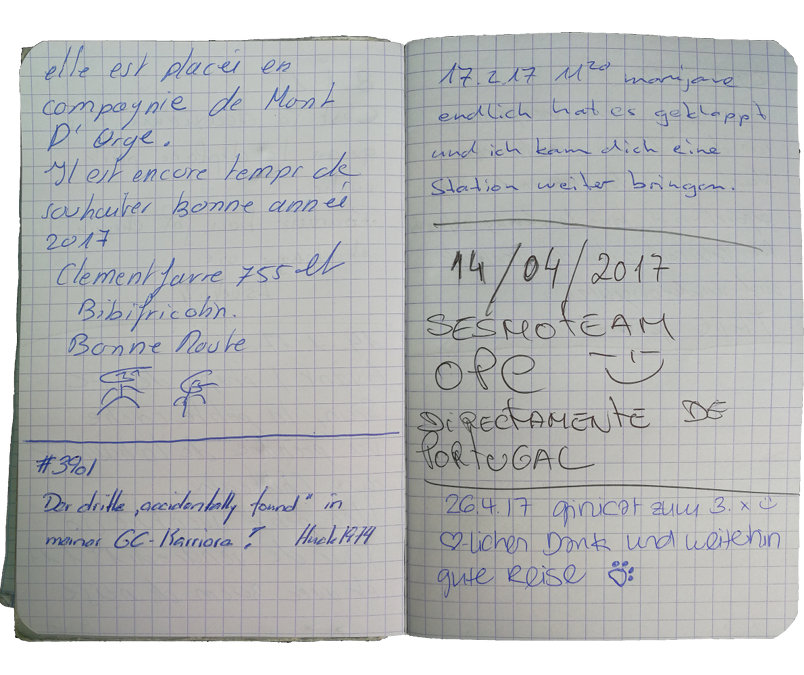 elle est placéi en
compagnie de Mont
D' Orge.
Il est encore temps de
souhaiter Bonne annéi
2017
Clement Javre 755 et
Bibifricotin.
Bonne Route
#3901
Der dritte „accidentally found" in
meiner GC-Karriere! Huck1974
17.2.17 11²⁰
endlich hat es geklappt
und ich kann dich eine
Station weiter bringen.
14/04/2017
SESMOTEAM
OPC
DIRECTAMENTE DE
PORTUGAL
26.4.17 zum 3. x
♡-lichen Dank und weiterhin
gute Reise